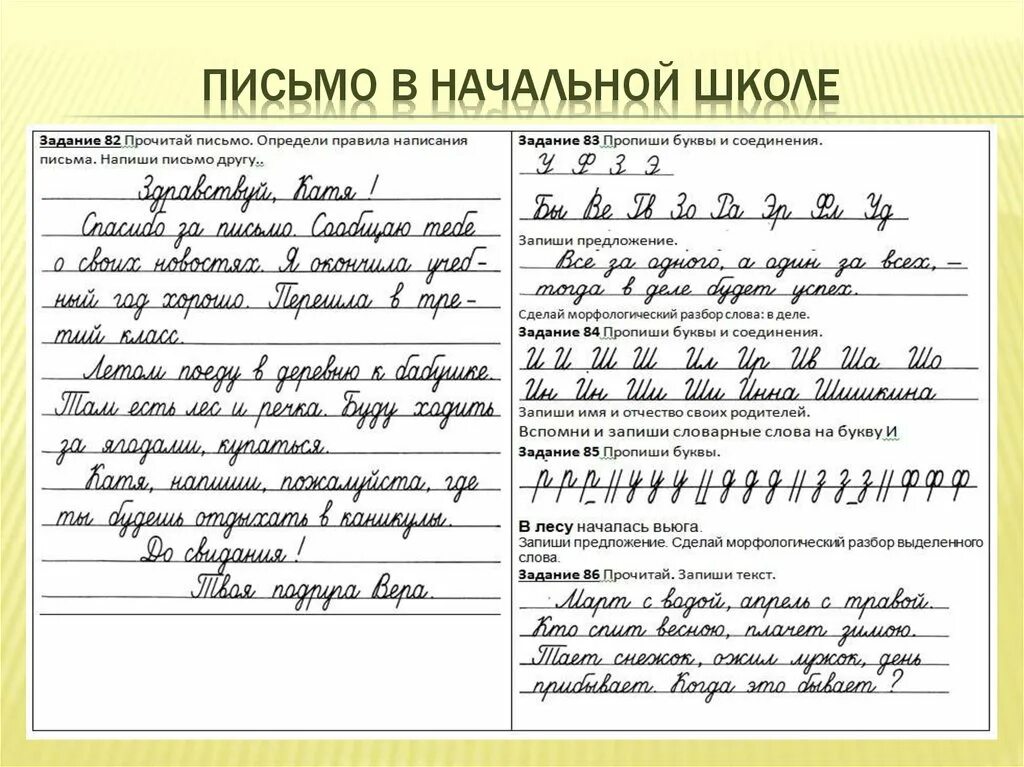 ПИСЬМО В НАЧАЛЬНОЙ ШКОЛЕ
Задание 82 Прочитай письмо. Определи правила написания
письма. Напиши письмо другу..
Здравствуй, Катя !
Спасибо за письмо. Сообщаю тебе
о своих новостях. Я окончила учеб-
ный год хорошо. Перешла в тре-
тий класс.
Летом поеду в деревню к бабушке.
Там есть лес и речка. Буду ходить
за ягодами, купаться.
Катя, напиши, пожалуйста, где
ты будешь отдыхать в каникулы.
До свидания !
Твоя подруга Вера.
Задание 83 Пропиши буквы и соединения.
У Ф З Э
Бы Ве Пв Зо Ра Эр Фл Уд
Запиши предложение.
Все за одного, а один за всех, –
тогда в деле будет успех.
Сделай морфологический разбор слова: в деле.
Задание 84 Пропиши буквы и соединения.
И И Ш Ш Ил Ир Ив Ша Шо
Ин Ин Ши Ши Инна Шишкина
Запиши имя и отчество своих родителей.
Вспомни и запиши словарные слова на букву И
Задание 85 Пропиши буквы.
р р р // у у у // д д д // з з з // ф ф ф
В лесу началась вьюга.
Запиши предложение. Сделай морфологический разбор выделенного
слова.
Задание 86 Прочитай. Запиши текст.
Март с водой, апрель с травой.
Кто спит весною, плачет зимою.
Тает снежок, ожил лужок, день
прибывает. Когда это бывает ?